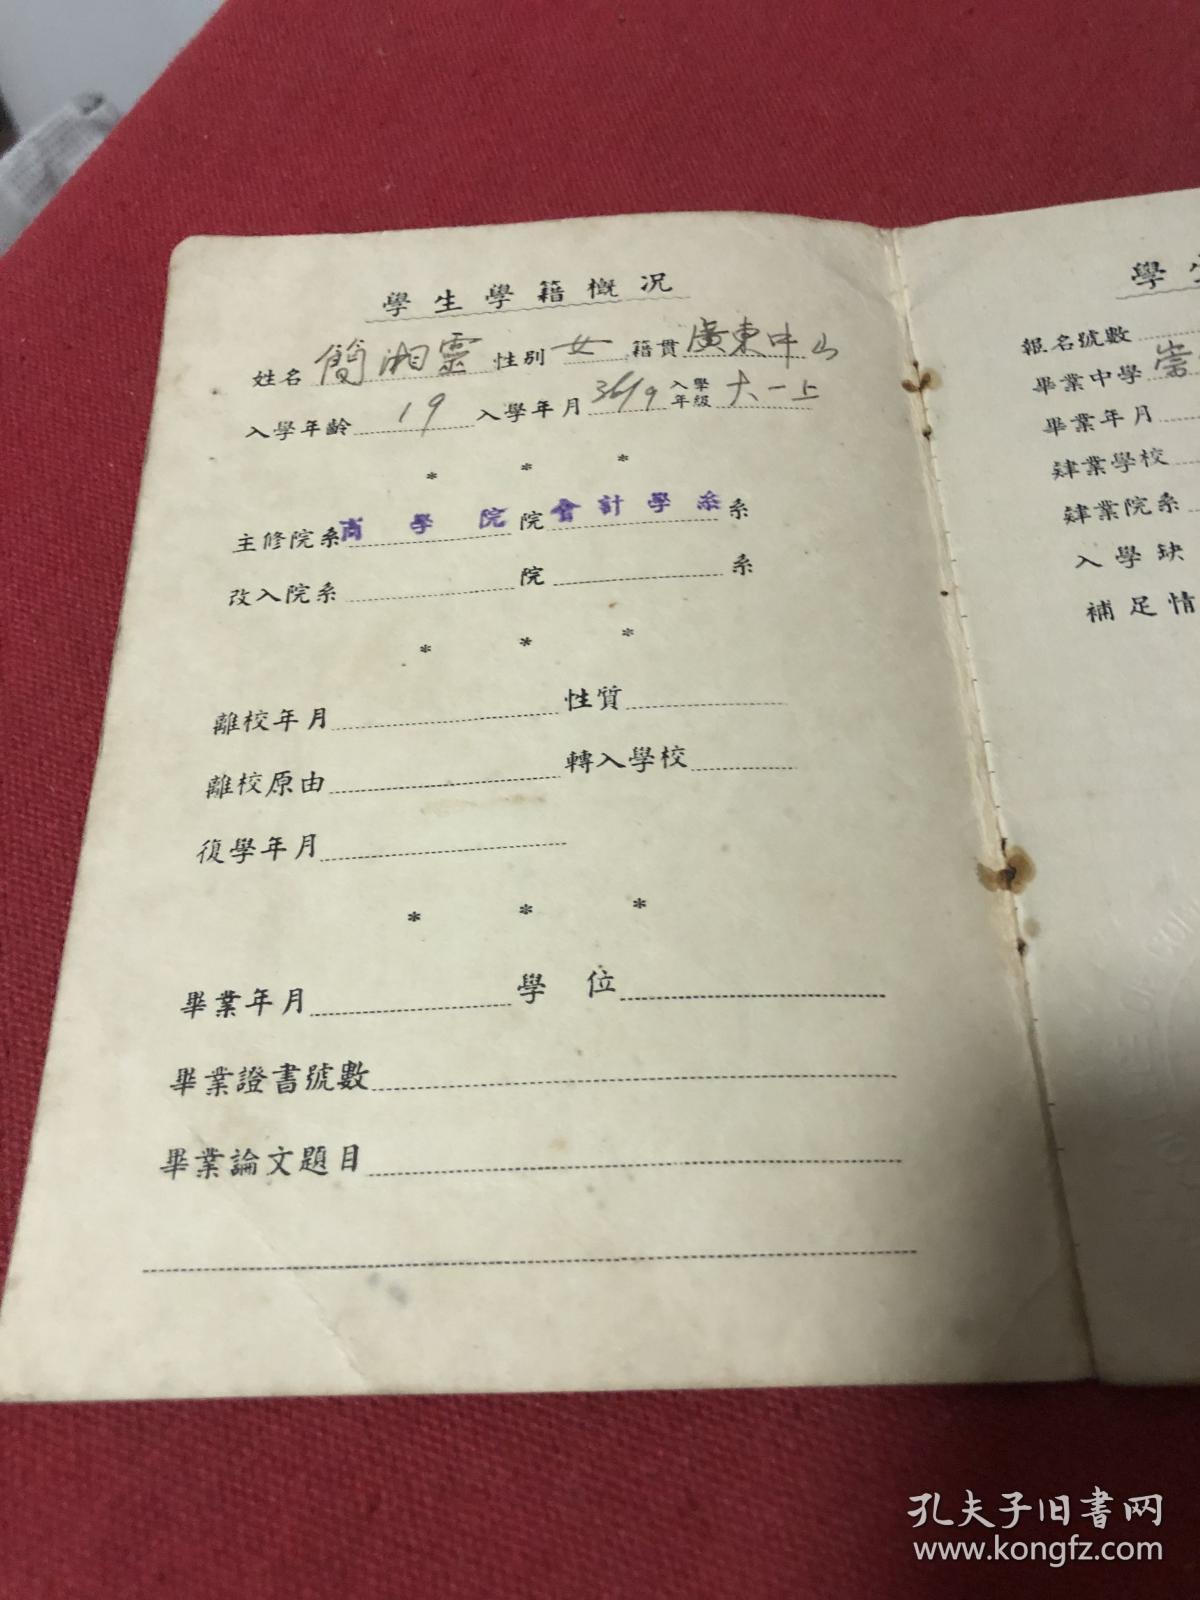 學生學籍概況
姓名 簡湘靈 性別 女 籍貫 廣東中山
入學年齡 19 入學年月 36/9 入學年級 大一上
* * *
主修院系 商學院 院 會計學系 系
改入院系 院 系
* * *
離校年月 性質
離校原由 轉入學校
復學年月
* * *
畢業年月 學位
畢業證書號數
畢業論文題目
學
報名號數
畢業中學 崇
畢業年月
肄業學校
肄業院系
入學缺
補足情
孔夫子旧书网
www.kongfz.com